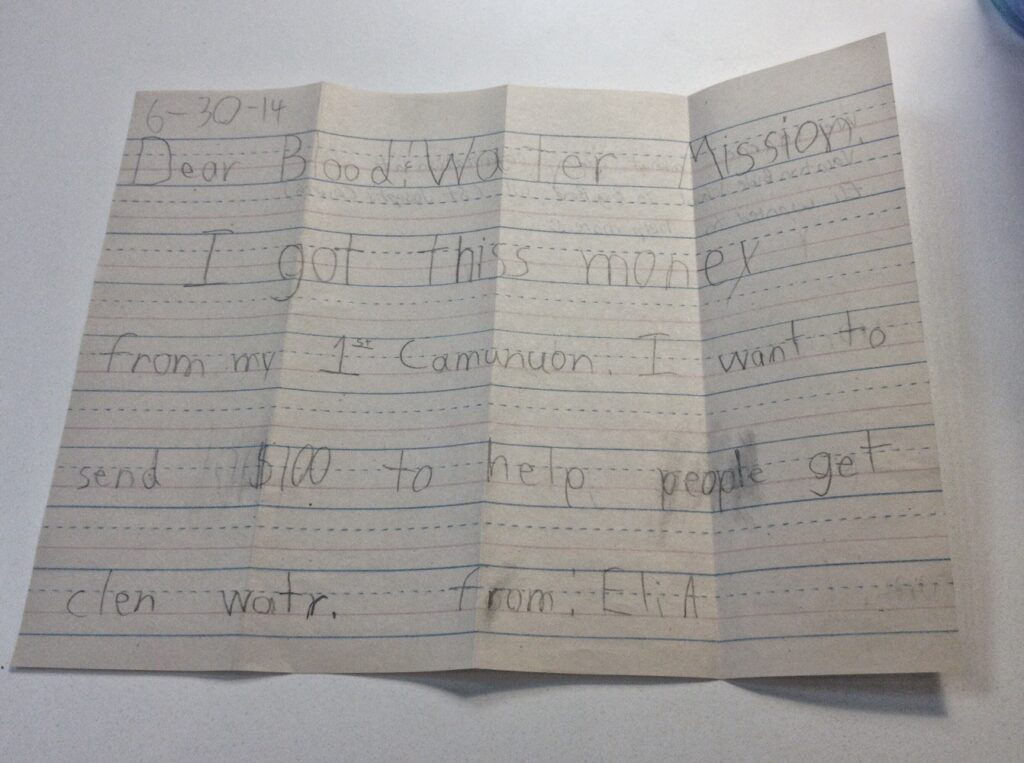 6-30-14
Dear Blood:Water Mission,
I got thiss money
from my 1st Camunuon. I want to
send $100 to help people get
clen watr. from: Eli A